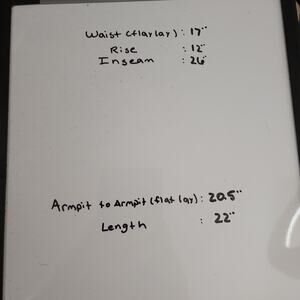 Waist (flaylay) : 17"
Rise : 12"
Inseam : 26"
Armpit to Armpit (flat lay) : 20.5"
Length : 22"